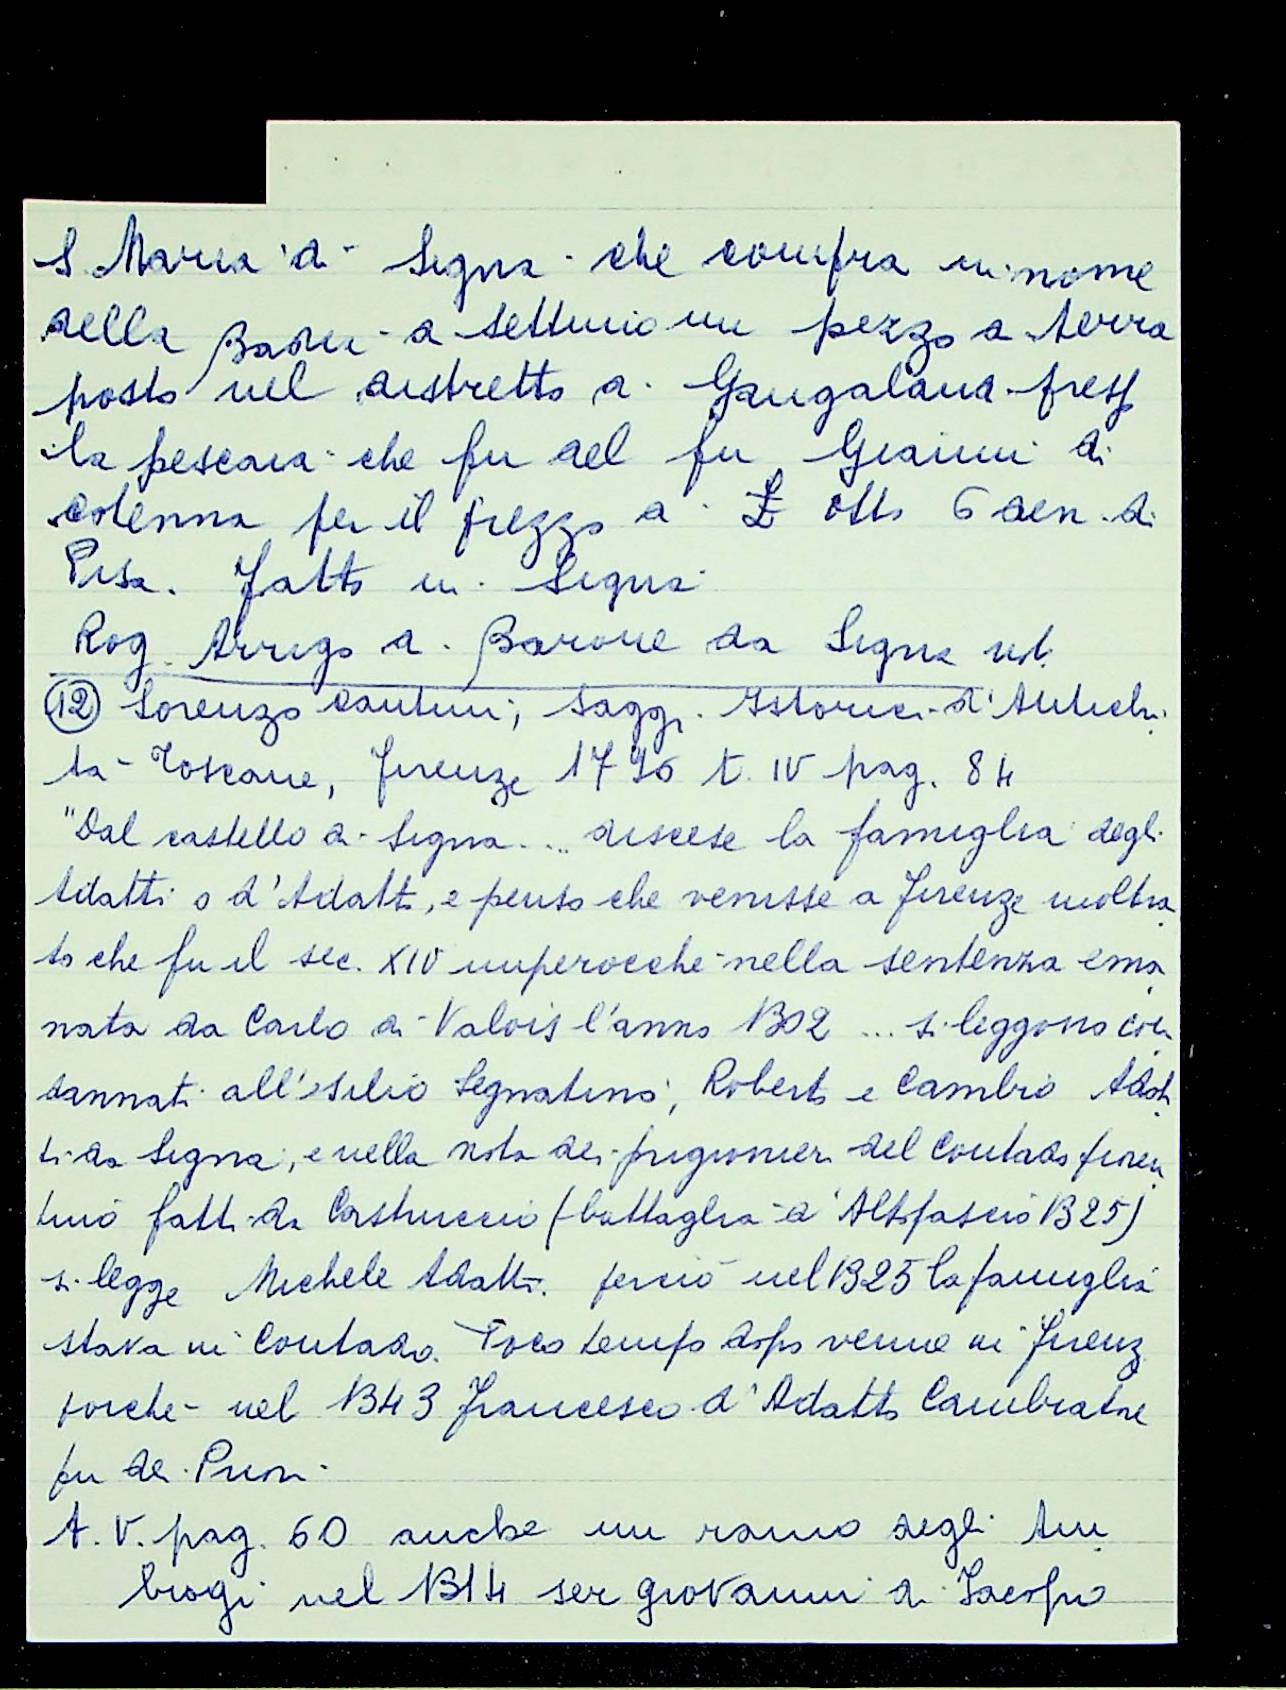 S. Maria di Segna che compra in nome
della Badia a Settimo un pezzo di terra
posto nel distretto di Gangalandi press
la pescaia che fu del fu Gianni di
Colenna per il prezzo di £ otto 6 den. di
Pisa. Fatto in Segna
Rog. Arrigo di Barone da Segna not.
(12) Lorenzo Cantini, Saggi Istorici d'Antichi
tà Toscane, Firenze 1796 t. IV pag. 84
"Dal castello di Segna ... discese la famiglia degli
Adatti o d'Adatti, e penso che venisse a Firenze inoltra
to che fu il sec. XIV imperocchè nella sentenza ema
nata da Carlo di Valois l'anno 1302 ... si leggono con
dannati all'esilio Segnatino, Roberto e Cambio Adat
ti da Segna, e nella nota dei prigionieri del Contado fioren
tino fatti da Castruccio (battaglia d'Altopascio 1325)
si legge Michele Adatti. perciò nel 1325 la famiglia
stava in Contado. Poco tempo dopo venne in Firenz
perchè nel 1343 Francesco d'Adatto Cambiatore
fu dei Priori.
t. V. pag. 60 anche un ramo degli Am
brogi nel 1314 ser Giovanni di Iacopo